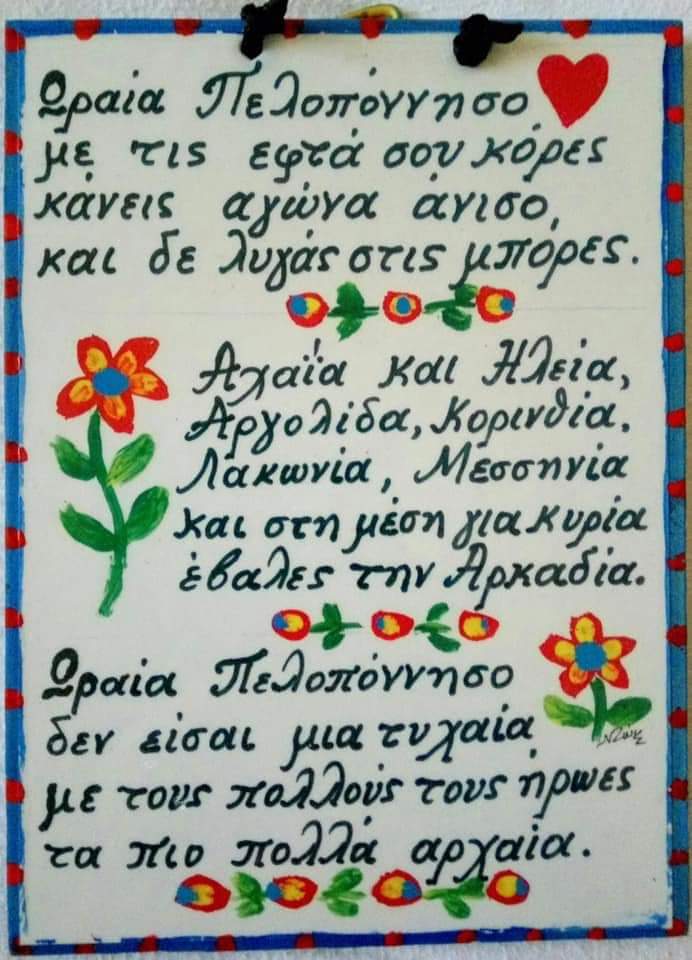 Ωραία Πελοπόννησο
με τις εφτά σου κόρες
κάνεις αγώνα άνισο,
και δε λυγάς στις μπόρες.
Αχαΐα και Ηλεία,
Αργολίδα, Κορινθία.
Λακωνία, Μεσσηνία
και στη μέση για κυρία
έβαλες την Αρκαδία.
Ωραία Πελοπόννησο
δεν είσαι μια τυχαία
με τους πολλούς τους ήρωες
τα πιο πολλά αρχαία.